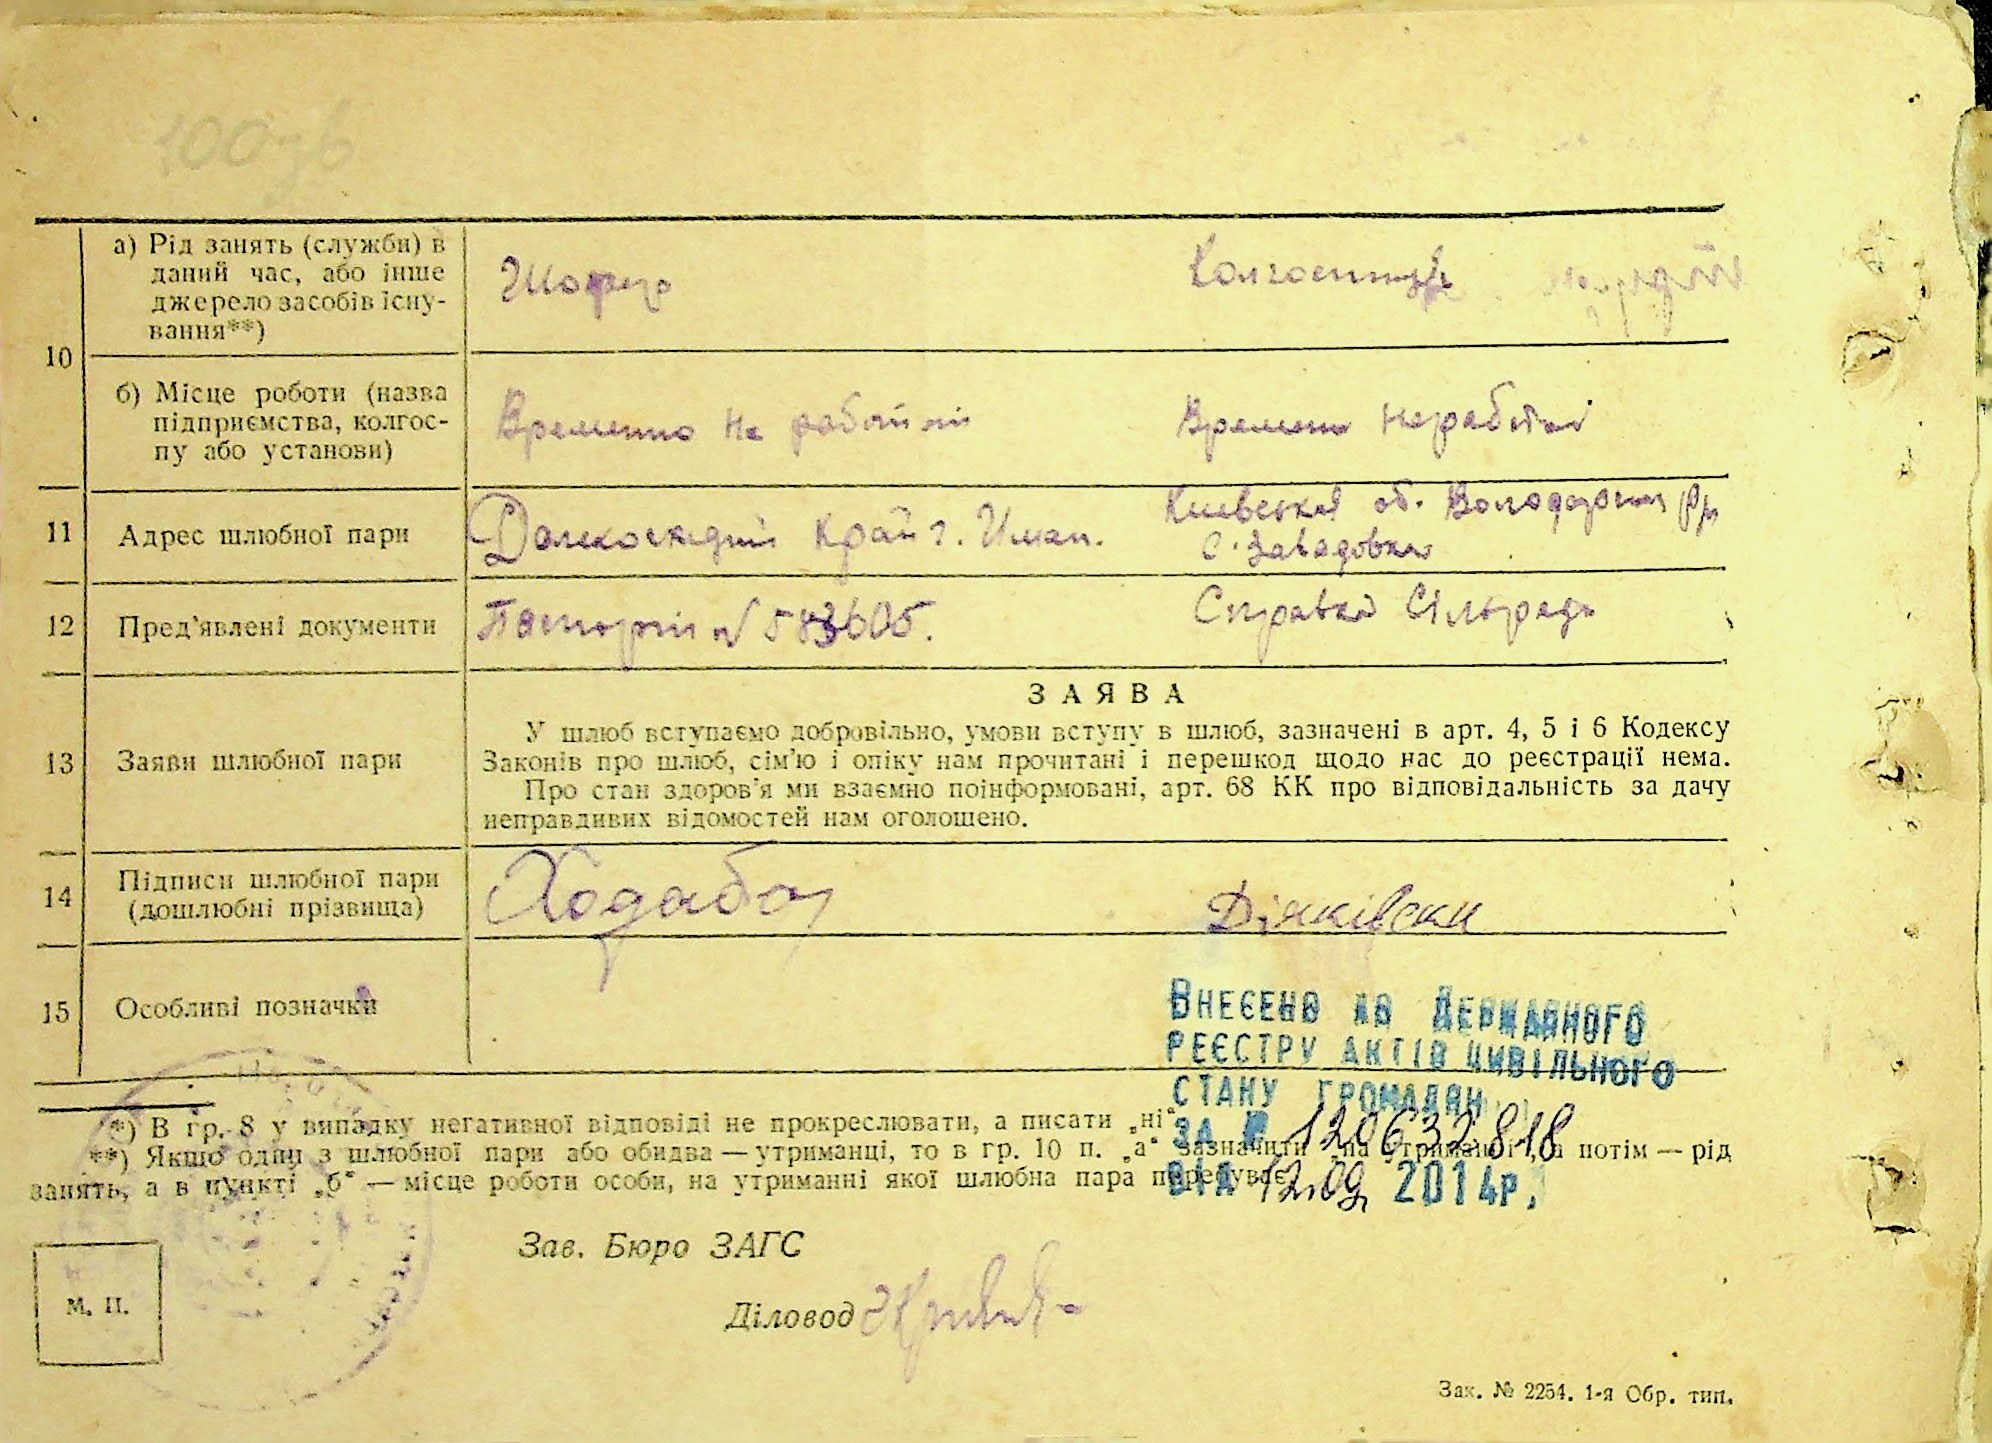 10
а) Рід занять (служби) в
даний час, або інше
джерело засобів існу-
вання**)
Шофер
б) Місце роботи (назва
підприємства, колгос-
пу або установи)
Временно не
Времено
11
Адрес шлюбної пари
край г. Иман.
об. Володарськ
с. Завадовка
12
Пред'явлені документи
Паспорт N 583605.
Справка Сільради
13
Заяви шлюбної пари
ЗАЯВА
У шлюб вступаємо добровільно, умови вступу в шлюб, зазначені в арт. 4, 5 і 6 Кодексу
Законів про шлюб, сім'ю і опіку нам прочитані і перешкод щодо нас до реєстрації нема.
Про стан здоров'я ми взаємно поінформовані, арт. 68 КК про відповідальність за дачу
неправдивих відомостей нам оголошено.
14
Підписи шлюбної пари
(дошлюбні прізвища)
15
Особливі позначки
ВНЕСЕНО ДО ДЕРЖАВНОГО
РЕЄСТРУ АКТІВ ЦИВІЛЬНОГО
СТАНУ ГРОМАДЯН
ЗА № 120632818
ВІД 12.09 2014р.
*) В гр. 8 у випадку негативної відповіді не прокреслювати, а писати „ні“
**) Якщо один з шлюбної пари або обидва — утриманці, то в гр. 10 п. „а“ зазначити „на утриманні“, а потім — рід
занять, а в пункті „б“ — місце роботи особи, на утриманні якої шлюбна пара перебуває.
Зав. Бюро ЗАГС
Діловод
М. П.
Зак. № 2254. 1-я Обр. тип.